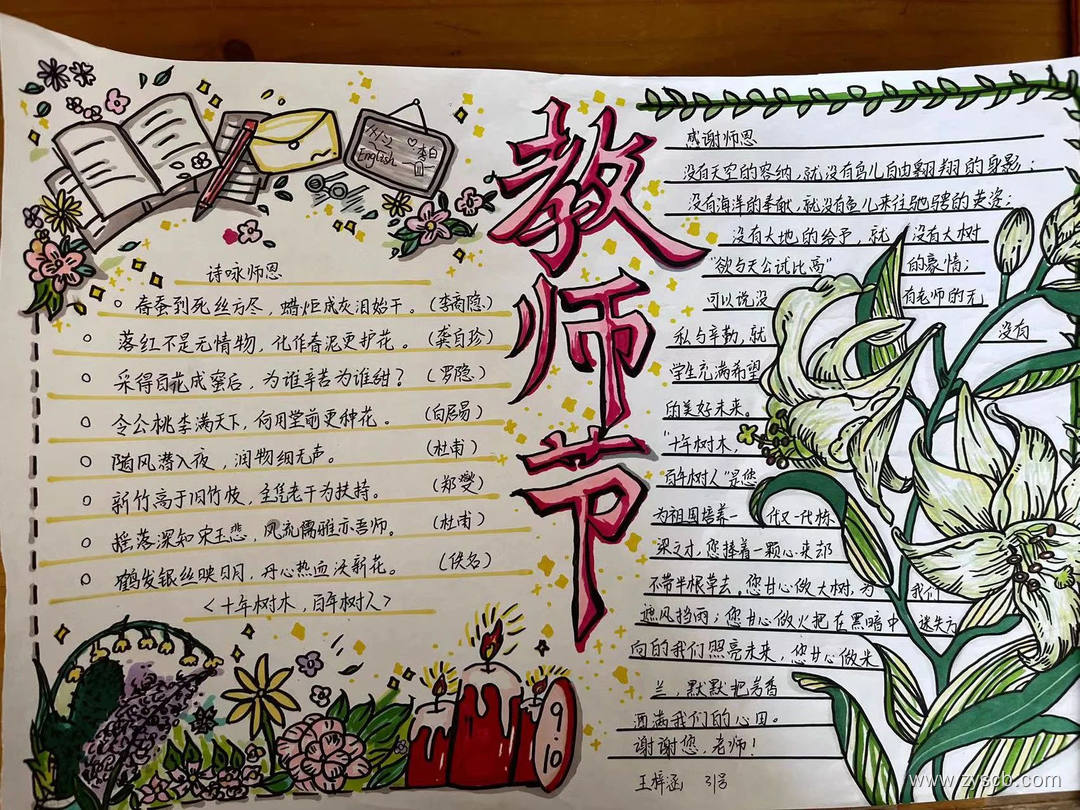 English
李白
教师节
诗咏师恩
春蚕到死丝方尽，蜡炬成灰泪始干。（李商隐）
落红不是无情物，化作春泥更护花。（龚自珍）
采得百花成蜜后，为谁辛苦为谁甜？（罗隐）
令公桃李满天下，何用堂前更种花。（白居易）
随风潜入夜，润物细无声。（杜甫）
新竹高于旧竹枝，全凭老干为扶持。（郑燮）
摇落深知宋玉悲，风流儒雅亦吾师。（杜甫）
鹤发银丝映日月，丹心热血沃新花。（佚名）
<十年树木，百年树人>
9.10
感谢师恩
没有天空的容纳，就没有鸟儿自由翱翔的身影；
没有海洋的奉献，就没有鱼儿来往驰骋的英姿；
没有大地的给予，就没有大树
"欲与天公试比高"的豪情；
可以说没有老师的无
私与辛勤，就没有
学生充满希望
的美好未来。
"十年树木，
百年树人"是您
为祖国培养一代又一代栋
梁之才，您捧着一颗心来却
不带半根草去。您甘心做大树，为我们
遮风挡雨；您甘心做火把在黑暗中迷失方
向的我们照亮未来，您甘心做米
兰，默默把芳香
洒满我们的心田。
谢谢您，老师！
王梓涵 31号
www.zyscb.com